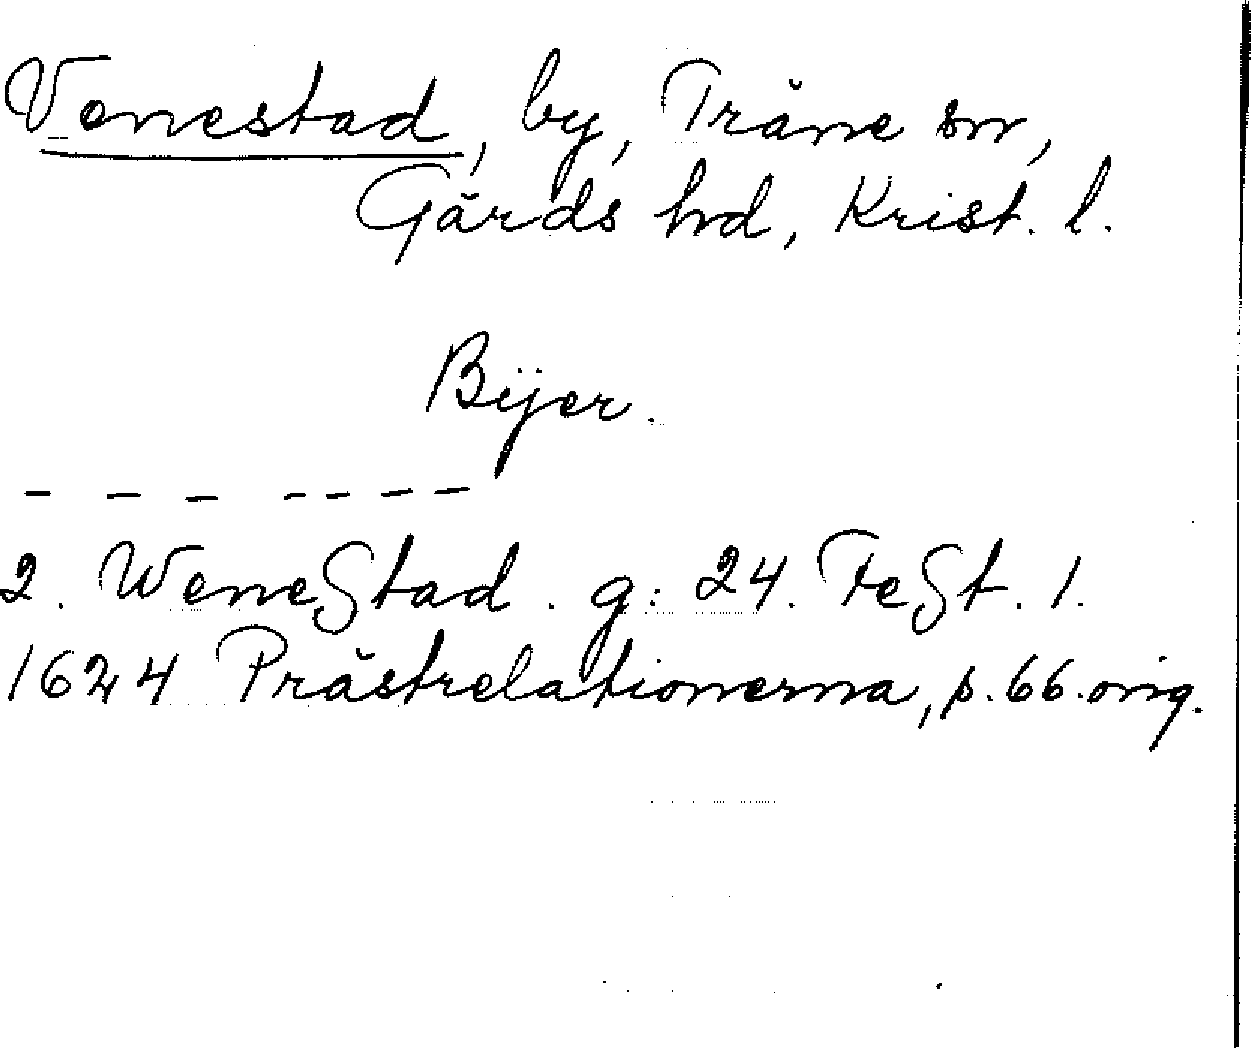 Venestad, by, Tråne sn,
Gärds hd, Krist. l.
Bÿer.
- - - - - - -
2. WeneStad. g: 24. FeSt. 1.
1624 Prästrelationerna, p. 66. orig.